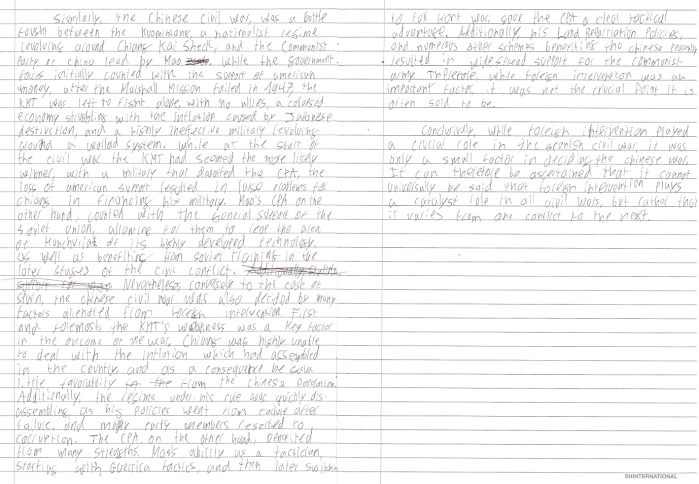 Similarly, the Chinese civil war, was a battle
fought between the Kuomintang, a nationalist regime
revolving around Chiang Kai Sheck, and the Communist
Party of China lead by Mao. While the government
forces initially counted with the support of american
money, after the Marshall Mission failed in 1947, the
KMT was left to fight alone, with no allies, a colapsed
economy struggling with the inflation caused by Japanese
destruction, and a highly ineffective military revolving
around a warlord system. While at the start of
the civil war the KMT had seemed the more likely
winner, with a military that dwarfed the CPA, the
loss of american support resulted in large problems for
chiang in financing his military. Mao's CPA on the
other hand, counted with the general support of the
soviet union, allowing for them to reap the area
of of its highly developed technology.
as well as benefiting from soviet training in the
later stages of the civil conflict.
Nevertheless, conversely to the case of
spain, the chinese civil war was also decided by many
factors alienated from foreign intervention. First
and foremost, the KMT's weakness was a key factor
in the outcome of the war. Chiang was highly unable
to deal with the inflation which had assembled
in the country, and as a consequence he saw
little favorability from the chinese population.
Additionally, the regime under his rule was quickly dis-
assembling, as his policies went from failure after
failure, and many party members resorted to
corruption. The CPA, on the other hand, benefited
from many strengths. Mao's ability as a tactician,
starting with Guerrica tactics, and then later switching
to war, gave the CPA a clear tactical
advantage. Additionally, his Land Policies,
and numerous other schemes benefiting the chinese peasantry
resulted in widespread support for the communist
army. Therefore, while foreign intervention was an
important factor, it was not the crucial point it is
often said to be.
Conclusively, while foreign intervention played
a crucial role in the spanish civil war, it was
only a small factor in deciding the chinese war.
It can therefore be ascertained that it cannot
universally be said that foreign intervention plays
a catalyst role in all civil wars, but rather that
it varies from one conflict to the next.
SHINTERNATIONAL